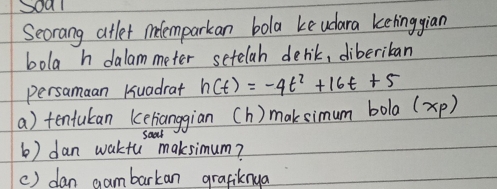 Soal
Seorang atlet melemparkan bola ke udara ketinggian
bola h dalam meter setelah detik, diberikan
persamaan kuadrat h(t) = -4t² +16t +5
a) tentukan ketianggian (h) maksimum bola (xp)
b) dan waktu saat maksimum?
c) dan gambarkan grafiknya